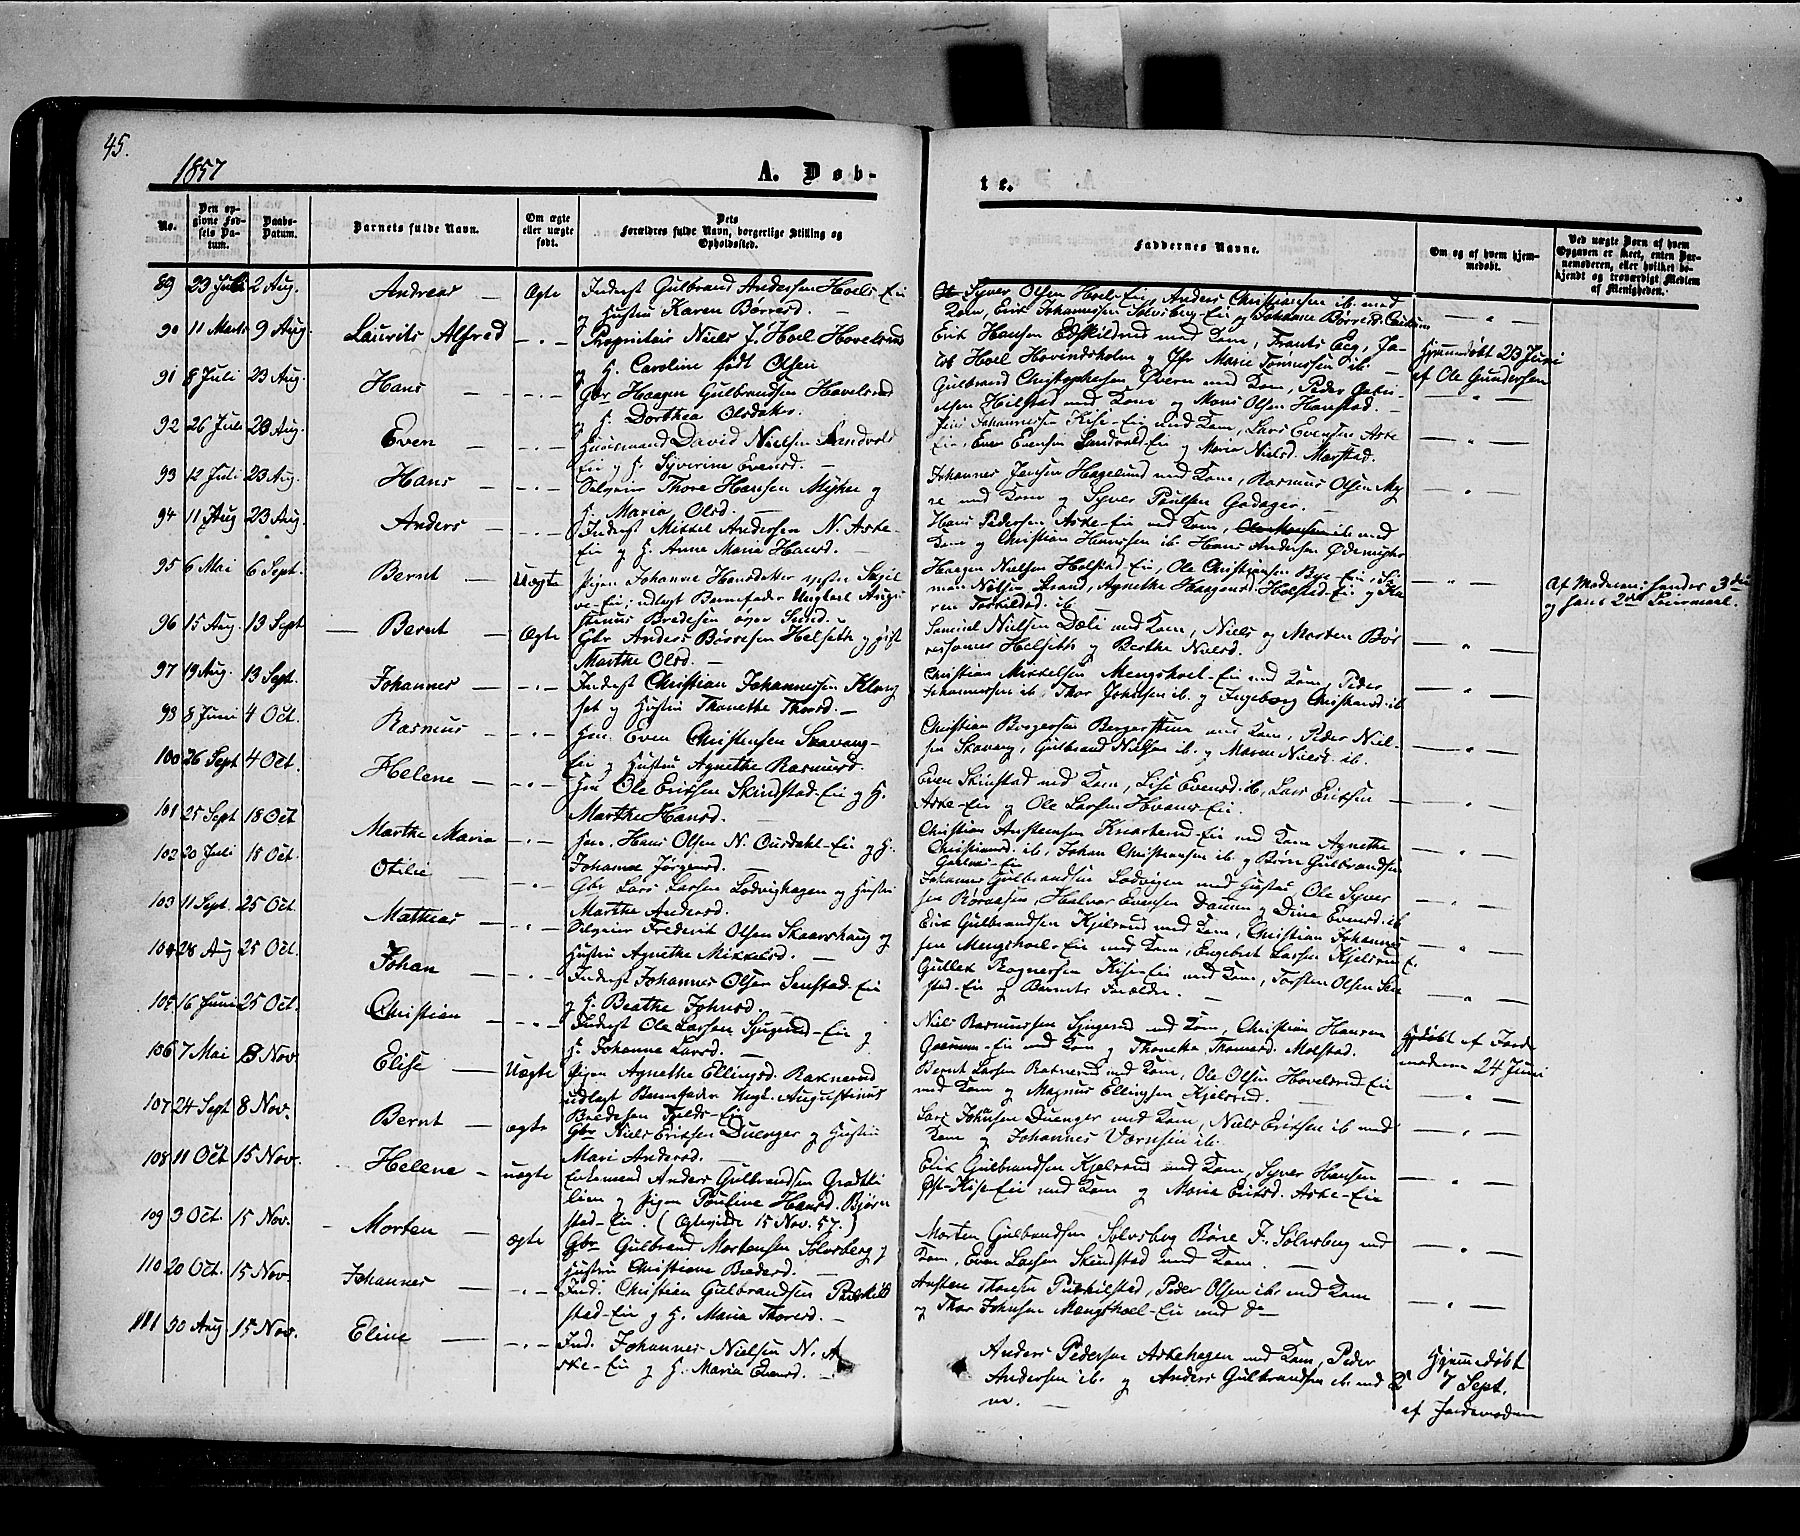 45.
1857
A. Døb-
te.
No.
Den opgivne Fødsels Datum.
Daabs-Datum.
Barnets fulde Navn.
Om ægte eller uægte født.
Dets Forældres fulde Navn, borgerlige Stilling og Opholdssted.
Faddernes Navne.
Om og af hvem hjemmedøbt.
Ved uægte Børn af hvem Opgaven er skeet, enten Barnemoderen, eller hvilket bekjendt og troværdigt Medlem af Menigheden.
89 23 Juli 2 Aug. Andreas — Ægte Inderst Gulbrand Andersen Hoels-Eie
og Hustru Karen Børresd. —
Syver Olsen Hoel-Eie, Anders Christiansen ib. med
Kone, Erik Johannesen Solvsberg-Eie og Johanne Børresd.
90 11 Marts 9 Aug. Laurits Alfred — " — Proprietair Niels J. Hoel Hovelsrud
og H. Caroline født Olsen
Erik Hansen Edskildrud med Kone, Frants Eeg, Ja-
cob Hoel Hovindsholm og Jfr Marie Tønnessen ib. —
Hjemmedøbt 23 Juni
af Ole Gundersen
91 8 Juli 23 Aug. Hans — " — Gbr Haagen Gulbrandsen Hovelsrud
og H. Dorthea Olsdatter
Gulbrand Christophersen Øvern med Kone, Peder Gabri-
elsen Helstad med Kone og Mons Olsen Hanstad. —
92 26 Juli 23 Aug. Even — " — Huusmand David Nielsen Sandvold
Eie og H. Syverine Evensd. —
Johannesen Kise-Eie med Kone, Lars Evensen Aske
Eie, Even Evensen Sandvold-Eie og Maria Nielsd. Mærstad.
93 12 Juli 23 Aug. Hans — " — Selveier Thore Hansen Myhre og
H. Maria Olsd. —
Johannes Jensen Hagelund med Kone, Rasmus Olsen My-
re med Kone og Syver Paulsen Gedager. —
94 11 Aug 23 Aug. Anders — " — Inderst Mikkel Andersen N. Aske-
Eie og H. Anne Maria Hansd. —
Hans Pedersen Aske-Eie med Kone, Ole Monsen ib. med
Kone og Christian Hansen ib. Hans Andersen
95 6 Mai 6 Sept. Bernt — Uægte Pigen Johanne Hansdatter
Eie, udlagt Barnefader Ungkarl Augu-
stinus Bredesen
Haagen Nielsen Holstad-Eie, Ole Christiansen Bye-Eie, Si-
mon Nielsen Strand, Agnethe Haagensd. Holstad-Eie og Ka-
ren Torkildsd. ib.
96 15 Aug. 13 Sept — Bernt — Ægte Gbr Anders Børresen Helseth og
Marthe Olsd. —
Samuel Nielsen Dæli med Kone, Niels og Morten Bør-
resønner Helseth og Berthe Nielsd.
97 19 Aug. 13 Sept. Johannes — " — Inderst Christian Johannesen
og Hustru Thonette Thorsd. —
Christian Mikkelsen Mengshoel-Eie med Kone, Peder
Johannesen ib. Thor Johnsen ib. og Ingeborg Christiansd. ib
98 8 Juni 4 Oct. Rasmus — " — Even Christensen Skavang-
Eie og Hustru Agnethe Rasmusd.
Christian Bergersen Bergerstuen med Kone, Peder Niel-
sen Skavang, Gulbrand Nielsen ib. og Maren Nielsd. ib.
100 26 Sept 4 Oct. Helene — " — Ole Eriksen Skindstad-Eie og H.
Marthe Hansd. —
Even Skinstad med Kone, Lise Evensd. ib, Lars Eriksen
Aske-Eie og Ole Larsen Hvams-Eie.
101 25 Sept 18 Oct Marthe Maria — " — Hans Olsen N. Ousdahl-Eie og H.
Johanne Jørgensd. —
Christian Anstensen Knarterud-Eie med Kone Agnethe
Christiansd. ib, Johan Christiansen ib. og Børre Gulbrandsen
102 20 Juli 18 Oct. Otilie — " — Gbr Lars Larsen Lodvighagen og Hustru
Marthe Andersd.
Johannes Gulbrandsen Lodvigen med Hustru, Ole Syver-
sen Røraasen, Halvor Evensen Dæmin og Dina Evensd. ib
103 11 Sept. 25 Oct. Mathias — " — Selveier Frederik Olsen Skaarshaug og
Hustru Agnethe Mikkelsd. —
Erik Gulbrandsen Kjelsrud med Kone, Christian Johannes-
sen Mengshoel-Eie med Kone, Engebret Larsen Kjelsrud E.
104 28 Aug 25 Oct. Johan — " — Inderst Johannes Olsen Senstad-Eie
og H. Beathe Johnsd.
Gullek Rognersen Kise-Eie med Kone, Torsten Olsen Sen-
stad-Eie og Barnets Forældre. —
105 16 Juni 25 Oct. Christian — " — Inderst Ole Larsen Sjugerud-Eie og
H. Johanne Larsd. —
Niels Rasmussen Sjugerud med Kone, Christian Hansen
med Kone og Thonette Thomasd. Molstad.
Hjdøbt af Jorde-
moderen 24 Juni
106 7 Mai 8 Nov. Elise — Uægte Pigen Agnethe Ellingsd. Raknerud
udlagt Barnefader Ungk. Augustinus
Bredesen Tjelds-Eie
Bernt Larsen Raknerud med Kone, Ole Olsen Hovelsrud Eie
med Kone og Magnus Ellingsen Kjelsrud. —
107 24 Sept 8 Nov. Bernt — ægte Gbr Niels Eriksen Duenger og Hustru
Mari Andersd. —
Lars Johnsen Duenger med Kone, Niels Eriksen ib med
Kone og Johannes ib.
108 11 Oct 15 Nov. Helene — uægte Enkemand Anders Gulbrandsen
og Pigen Pauline Hansd. Bjørn-
stad-Eie. (Ægteviede 15 Nov. 57.)
Erik Gulbrandsen Kjelsrud med Kone, Syver Hansen
Øst-Kise-Eie med Kone og Maria Eriksd. Aske-Eie
109 3 Oct. 15 Nov. Morten — ægte Gbr Gulbrand Mortensen Solvsberg og
Hustru Christiane Bredesd. —
Morten Gulbrandsen Solvsberg Børre F. Solvsberg med
Kone, Even Larsen Skindstad med Kone. —
110 20 Oct. 15 Nov. Johannes — " — Ind. Christian Gulbrandsen
stad-Eie og H. Maria Thoresd. —
Austen Thoresen, Peder Olsen ib. med Kone
og Thor Johnsen Mengshoel-Eie med do
111 30 Aug 15 Nov. Eline — " — Ind. Johannes Nielsen N. A-
ske-Eie og H. Maria Evensd. —
Anders Pedersen Askehagen med Kone, Peder
Andersen ib. og Anders Gulbrandsen ib. med
Hjemmedøbt
7 Sept.
af Jordemoderen
Af Moderen: hendes 3die
og hans 2det Leiermaal.